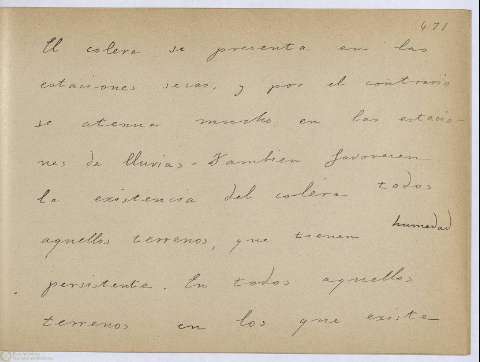 471
El colera se presenta en las
estaciones secas, y por el contrario
se atenua mucho en las estacio-
nes de lluvias. Tambien favorecen
la existencia del colera todos
aquellos terrenos, que tienen humedad
persistente. En todos aquellos
terrenos en los que existe